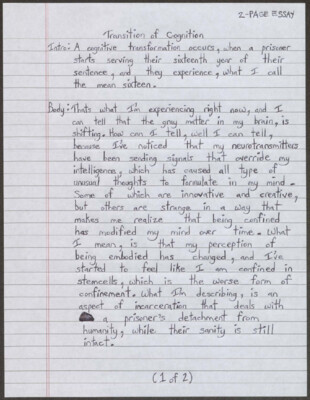 2-PAGE ESSAY
Transition of Cognition
Intro: A cognitive transformation occurs, when a prisoner
starts serving their sixteenth year of their
sentence, and they experience, what I call
the mean sixteen.
Body: Thats what I'm experiencing right now, and I
can tell that the gray matter in my brain, is
shifting. How can I tell, well I can tell,
because I've noticed that my neurotransmitters
have been sending signals that override my
intelligence, which has caused all type of
unusual thoughts to formulate in my mind.
Some of which are innovative and creative,
but others are strange in a way that
makes me realize that being confined
has modified my mind over time. What
I mean, is that my perception of
being embodied has changed, and I've
started to feel like I am confined in
stemcells, which is the worse form of
confinement. What I'm describing, is an
aspect of incarceration that deals with
a prisoner's detachment from
humanity, while their sanity is still
intact.
(1 of 2)